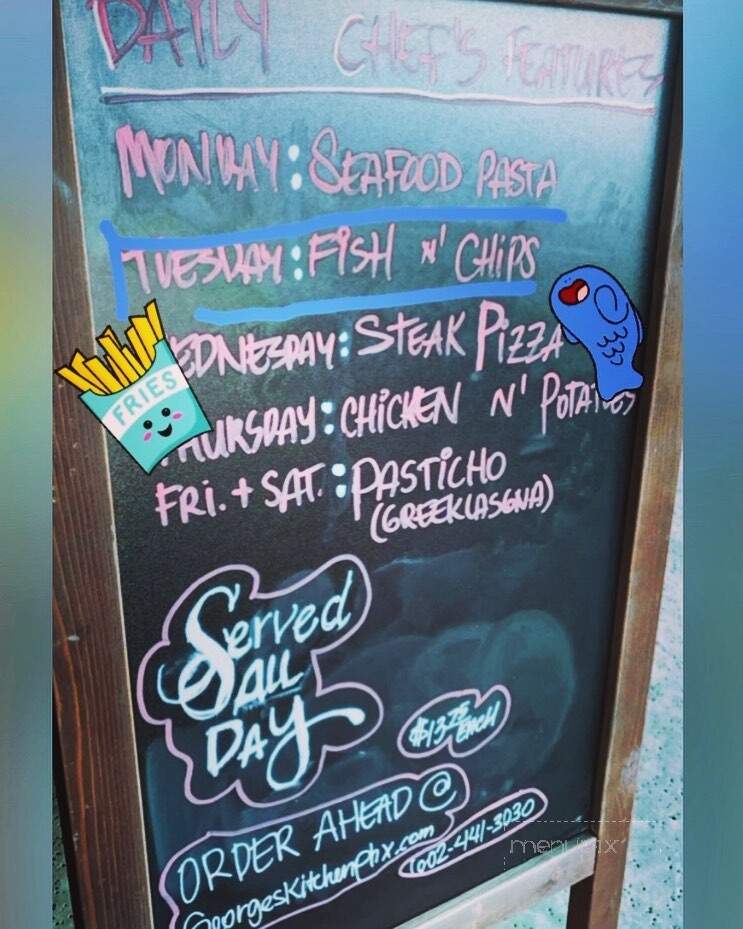 DAILY CHEF'S FEATURES
MONDAY: SEAFOOD PASTA
TUESDAY: FISH N' CHIPS
WEDNESDAY: STEAK PIZZA
FRIES
THURSDAY: CHICKEN N' POTATOES
FRI. + SAT.: PASTICHO
(GREEK LASGNA)
Served
ALL
DAY
$13.75 EACH
ORDER AHEAD @
GeorgesKitchenphx.com
602-441-3030
menupix